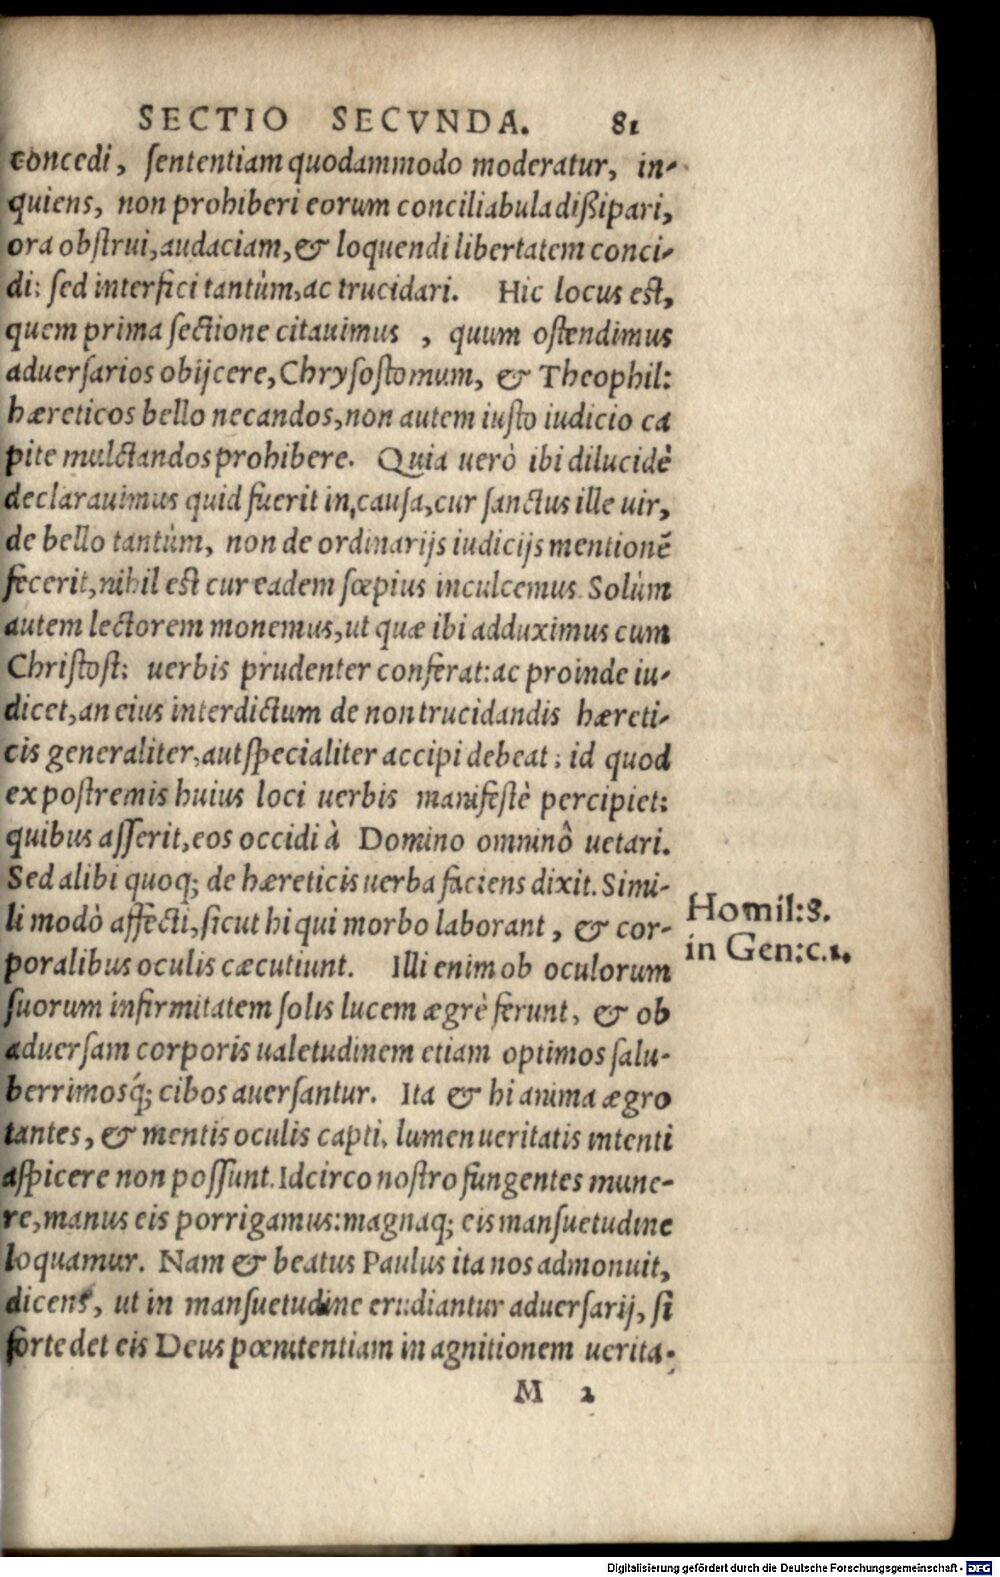 SECTIO SECVNDA. 81
concedi, sententiam quodammodo moderatur, in-
quiens, non prohiberi eorum conciliabula dißipari,
ora obstrui, audaciam, & loquendi libertatem conci-
di: sed interfici tantùm, ac trucidari. Hic locus est,
quem prima sectione citauimus , quum ostendimus
aduersarios obijcere, Chrysostomum, & Theophil:
hæreticos bello necandos, non autem iusto iudicio ca
pite mulctandos prohibere. Quia uerò ibi dilucidè
declarauimus quid fuerit in causa, cur sanctus ille uir,
de bello tantùm, non de ordinarijs iudicijs mentionẽ
fecerit, nihil est cur eadem sœpius inculcemus. Solùm
autem lectorem monemus, ut quæ ibi adduximus cum
Christost: uerbis prudenter conferat: ac proinde iu-
dicet, an eius interdictum de non trucidandis hæreti-
cis generaliter, aut specialiter accipi debeat; id quod
ex postremis huius loci uerbis manifestè percipiet:
quibus asserit, eos occidi à Domino omninô uetari.
Sed alibi quoq; de hæreticis uerba faciens dixit. Simi-
li modò affecti, sicut hi qui morbo laborant, & cor-
poralibus oculis cæcutiunt. Illi enim ob oculorum
suorum infirmitatem solis lucem ægrè ferunt, & ob
aduersam corporis ualetudinem etiam optimos salu-
berrimosq́; cibos auersantur. Ita & hi anima ægro
tantes, & mentis oculis capti, lumen ueritatis intenti
aspicere non possunt. Idcirco nostro fungentes mune-
re, manus eis porrigamus: magnaq; eis mansuetudine
loquamur. Nam & beatus Paulus ita nos admonuit,
dicens, ut in mansuetudine erudiantur aduersarij, si
forte det eis Deus pœnitentiam in agnitionem uerita-
M 2
Homil: 8.
in Gen: c.1.
Digitalisierung gefördert durch die Deutsche Forschungsgemeinschaft - DFG